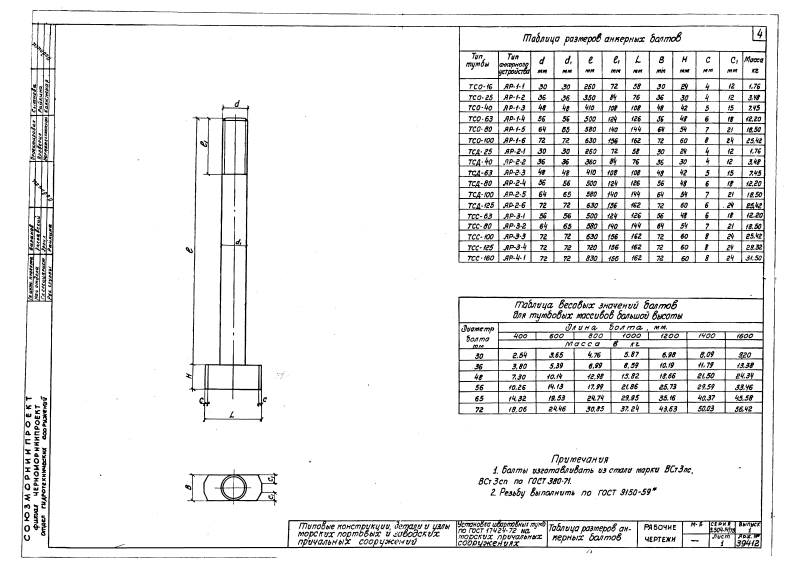 4
Таблица размеров анкерных болтов
Тип тумбы | Тип анкерного устройства | d мм | d₁ мм | ℓ мм | ℓ₁ мм | L мм | B мм | H мм | C мм | C₁ мм | Масса кг
ТСО-16 | АР-1-1 | 30 | 30 | 260 | 72 | 58 | 30 | 24 | 4 | 12 | 1.76
ТСО-25 | АР-1-2 | 36 | 36 | 350 | 84 | 76 | 36 | 30 | 4 | 12 | 3.48
ТСО-40 | АР-1-3 | 48 | 48 | 410 | 108 | 108 | 48 | 42 | 5 | 15 | 7.45
ТСО-63 | АР-1-4 | 56 | 56 | 500 | 124 | 126 | 56 | 48 | 6 | 18 | 12.20
ТСО-80 | АР-1-5 | 64 | 65 | 580 | 140 | 144 | 64 | 54 | 7 | 21 | 18.50
ТСО-100 | АР-1-6 | 72 | 72 | 630 | 156 | 162 | 72 | 60 | 8 | 24 | 25.42
ТСД-25 | АР-2-1 | 30 | 30 | 260 | 72 | 58 | 30 | 24 | 4 | 12 | 1.76
ТСД-40 | АР-2-2 | 36 | 36 | 360 | 84 | 76 | 36 | 30 | 4 | 12 | 3.48
ТСД-63 | АР-2-3 | 48 | 48 | 410 | 108 | 108 | 48 | 42 | 5 | 15 | 7.45
ТСД-80 | АР-2-4 | 56 | 56 | 500 | 124 | 126 | 56 | 48 | 6 | 18 | 12.20
ТСД-100 | АР-2-5 | 64 | 65 | 580 | 140 | 144 | 64 | 54 | 7 | 21 | 18.50
ТСД-125 | АР-2-6 | 72 | 72 | 630 | 156 | 162 | 72 | 60 | 6 | 24 | 25.42
ТСС-63 | АР-3-1 | 56 | 56 | 500 | 124 | 126 | 56 | 48 | 6 | 18 | 12.20
ТСС-80 | АР-3-2 | 64 | 65 | 580 | 140 | 144 | 64 | 54 | 7 | 21 | 18.50
ТСС-100 | АР-3-3 | 72 | 72 | 630 | 156 | 162 | 72 | 60 | 8 | 24 | 25.42
ТСС-125 | АР-3-4 | 72 | 72 | 720 | 156 | 162 | 72 | 60 | 8 | 24 | 28.32
ТСС-160 | АР-4-1 | 72 | 72 | 830 | 156 | 162 | 72 | 60 | 8 | 24 | 31.50
Таблица весовых значений болтов
для тумбовых массивов большой высоты
Диаметр болта мм | Длина болта, мм.
400 | 600 | 800 | 1000 | 1200 | 1400 | 1600
Масса в кг
30 | 2.54 | 3.65 | 4.76 | 5.87 | 6.98 | 8.09 | 9.20
36 | 3.80 | 5.39 | 6.99 | 8.59 | 10.19 | 11.79 | 13.38
48 | 7.30 | 10.14 | 12.98 | 15.82 | 18.66 | 21.50 | 24.34
56 | 10.26 | 14.13 | 17.99 | 21.86 | 25.73 | 29.59 | 33.46
65 | 14.32 | 19.53 | 24.74 | 29.95 | 35.16 | 40.37 | 45.58
72 | 18.06 | 24.46 | 30.85 | 37.24 | 43.63 | 50.03 | 56.42
Примечания
1. Болты изготавливать из стали марки ВСт3пс,
ВСт3сп по ГОСТ 380-71.
2. Резьбу выполнить по ГОСТ 9150-59*
d
ℓ₁
d₁
ℓ
H
C
C
L
B
C₁
C₁
СОЮЗМОРНИИПРОЕКТ
филиал ЧЕРНОМОРНИИПРОЕКТ
отдел гидротехнических сооружений
Типовые конструкции, детали и узлы
морских портовых и заводских
причальных сооружений
Установка швартовных тумб
по ГОСТ 17424-72 на
морских причальных
сооружениях
Таблица размеров ан-
керных болтов
РАБОЧИЕ
ЧЕРТЕЖИ
М-Б
—
СЕРИЯ
Выпуск
1
Лист
1
39412